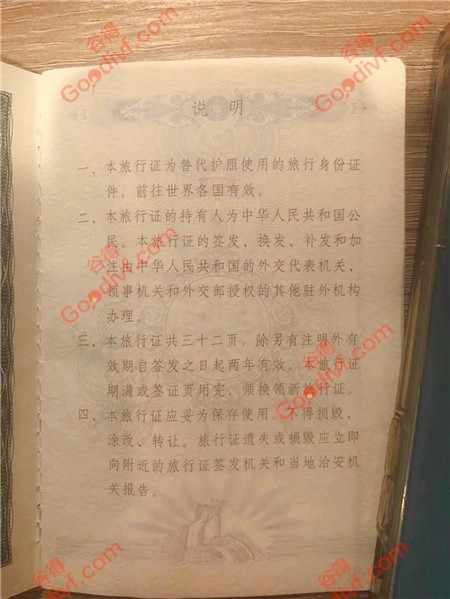 说 明
一、本旅行证为替代护照使用的旅行身份证
件，前往世界各国有效。
二、本旅行证的持有人为中华人民共和国公
民。本旅行证的签发、换发、补发和加
注由中华人民共和国的外交代表机关、
领事机关和外交部授权的其他驻外机构
办理。
三、本旅行证共三十二页，除另有注明外有
效期自签发之日起两年有效。本旅行证
期满或签证页用完，须换领新旅行证。
四、本旅行证应妥为保存使用，不得损毁、
涂改、转让。旅行证遗失或损毁应立即
向附近的旅行证签发机关和当地治安机
关报告。
谷得
Goodivf.com
谷得
Goodivf.com
谷得
Goodivf.com
谷得
Goodivf.com
谷得
Goodivf.com
谷得
Goodivf.com
谷得
Goodivf.com